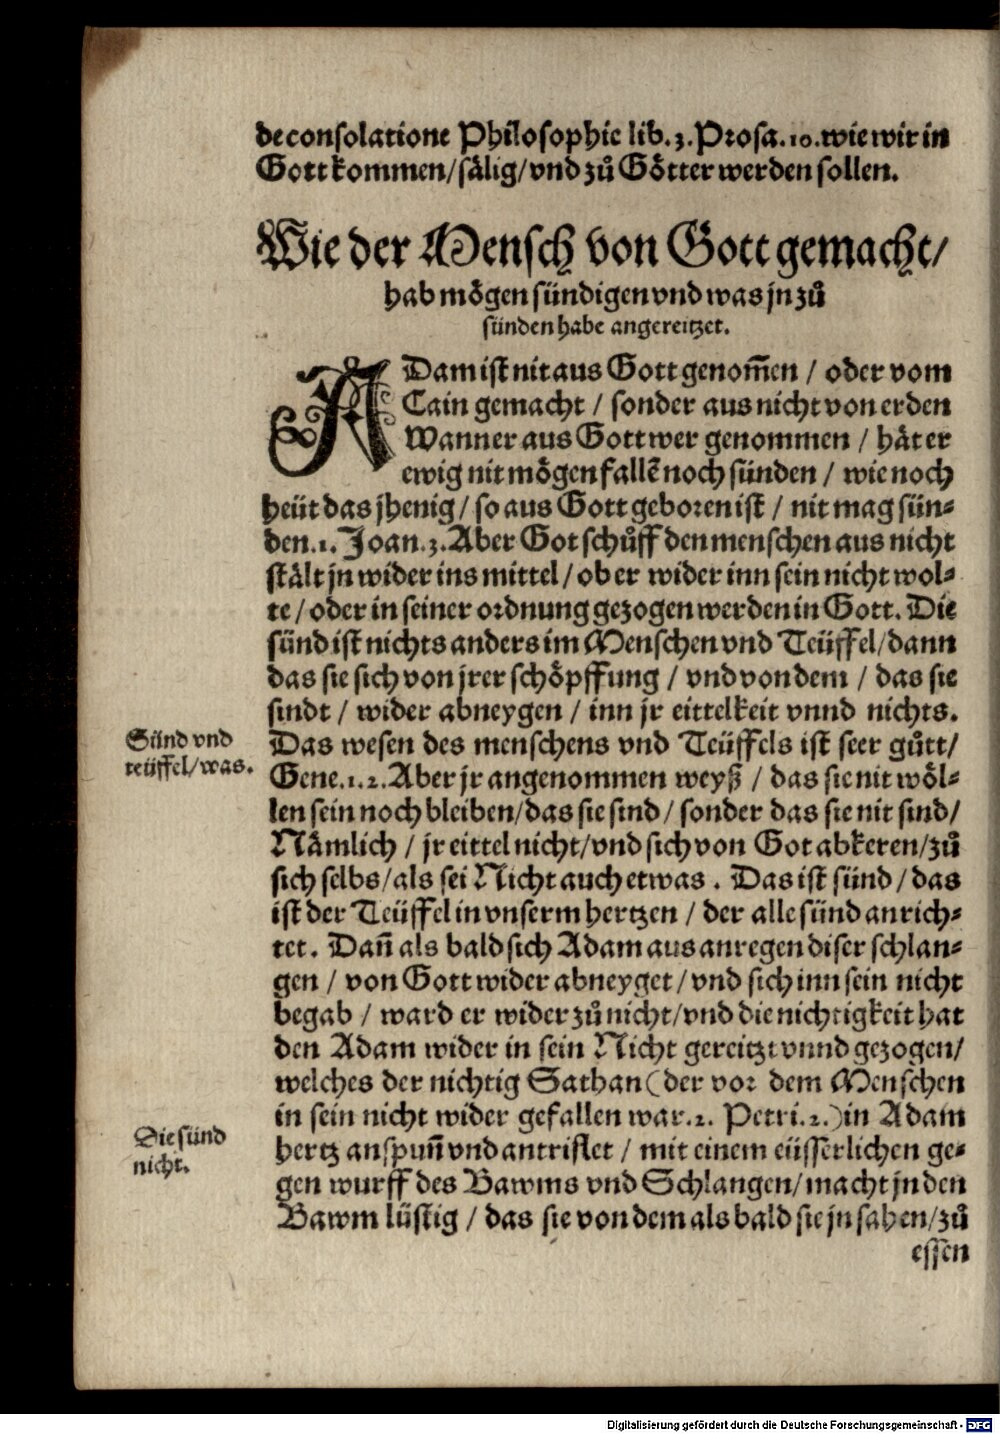 de consolatione Philosophie lib.3.Prosa.10.wie wir in
Gott kommen/sälig/vnd zů Götter werden sollen.
Wie der Mensch von Gott gemacht/
hab mögen sündigen vnd was jn zů
sünden habe angereitzet.
ADam ist nit aus Gott genom̃en / oder vom
Cain gemacht / sonder aus nicht von erden
Wann er aus Gott wer genommen / hät er
ewig nit mögen fallẽ noch sünden / wie noch
heüt das jhenig / so aus Gott geboren ist / nit mag sün⸗
den.1. Joan.3. Aber Got schůff den menschen aus nicht
stält jn wider ins mittel / ob er wider inn sein nicht wol⸗
te / oder in seiner ordnung gezogen werden in Gott. Die
sünd ist nichts anders im Menschen vnd Teüffel/dann
das sie sich von jrer schöpffung / vnd von dem / das sie
sindt / wider abneygen / inn jr eittelkeit vnnd nichts.
Sünd vnd
teüffel/was.
Das wesen des menschens vnd Teüffels ist seer gůtt/
Gene.1.2. Aber jr angenommen weyß / das sie nit wöl⸗
len sein noch bleiben/das sie sind / sonder das sie nit sind/
Nämlich / jr eittel nicht/vnd sich von Got abkeren/zů
sich selbs/als sei Nicht auch etwas . Das ist sünd / das
ist der Teüffel in vnserm hertzen / der alle sünd anrich⸗
tet . Dañ als bald sich Adam aus anregen diser schlan⸗
gen / von Gott wider abneyget / vnd sich inn sein nicht
begab / ward er wider zů nicht/vnd die nichtigkeit hat
den Adam wider in sein Nicht gereitzt vnnd gezogen/
welches der nichtig Sathan (der vor dem Menschen
in sein nicht wider gefallen war.2. Petri.2.) in Adam
Die sünd
nicht.
hertz anspuñ vnd antrifflet / mit einem eüsserlichen ge⸗
gen wurff des Bawms vnd Schlangen/macht jn den
Bawm lüstig / das sie von dem als bald sie jn sahen/zů
essen
Digitalisierung gefördert durch die Deutsche Forschungsgemeinschaft - DFG